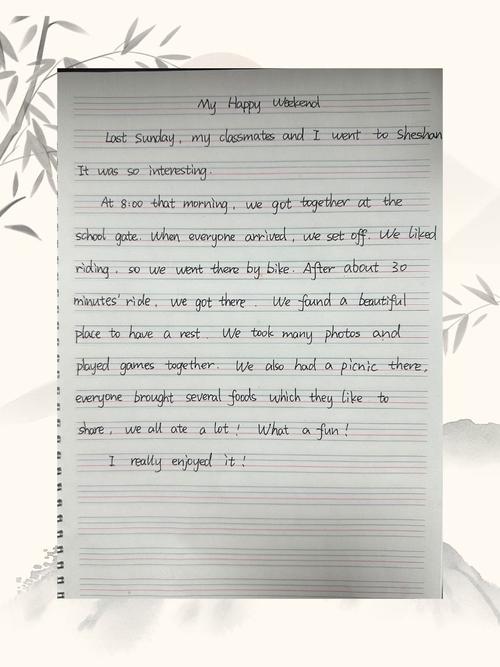 My Happy Weekend
Last Sunday, my classmates and I went to Sheshan
It was so interesting.
At 8:00 that morning, we got together at the
school gate. When everyone arrived, we set off. We liked
riding, so we went there by bike. After about 30
minutes' ride, we got there. We found a beautiful
place to have a rest. We took many photos and
played games together. We also had a picnic there,
everyone brought several foods which they like to
share, we all ate a lot! What a fun!
I really enjoyed it!